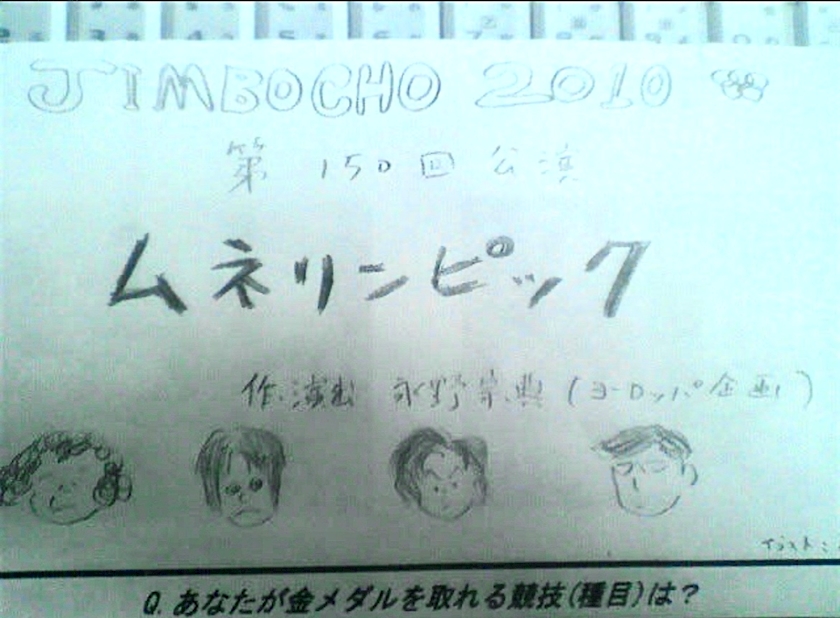 JIMBOCHO 2010
第150回公演
ムネリンピック
作・演出 永野宗典(ヨーロッパ企画)
イラスト:
Q. あなたが金メダルを取れる競技(種目)は?